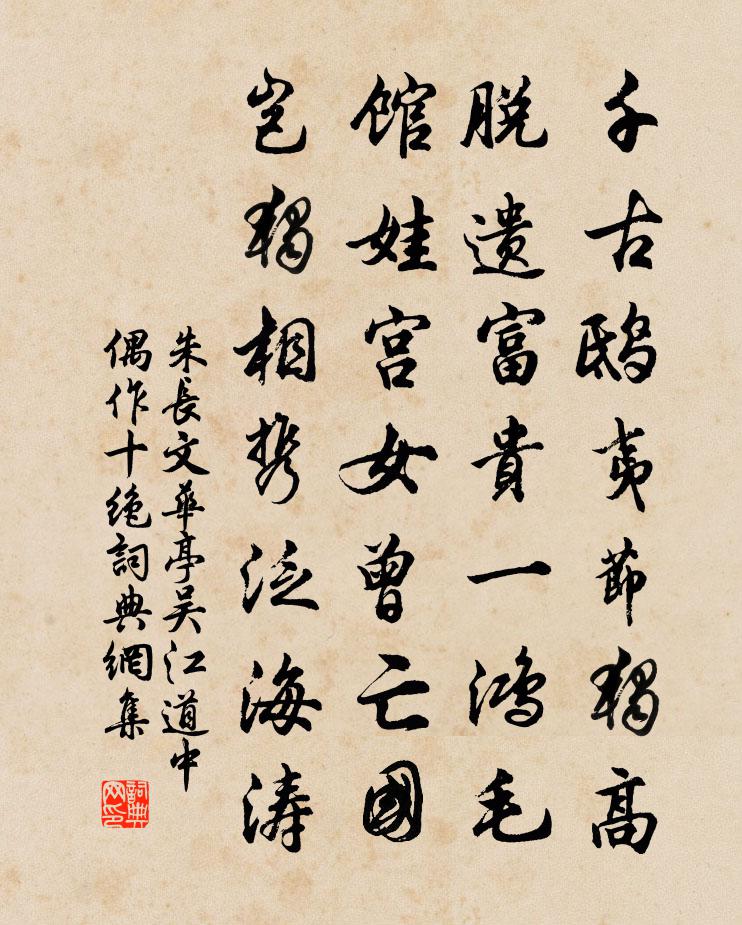 千古鴟夷節獨高
脱遺富貴一鴻毛
館娃宫女曾亡國
豈獨相携泛海濤
朱長文華亭吴江道中
偶作十絶詞典網集
詞典
网印